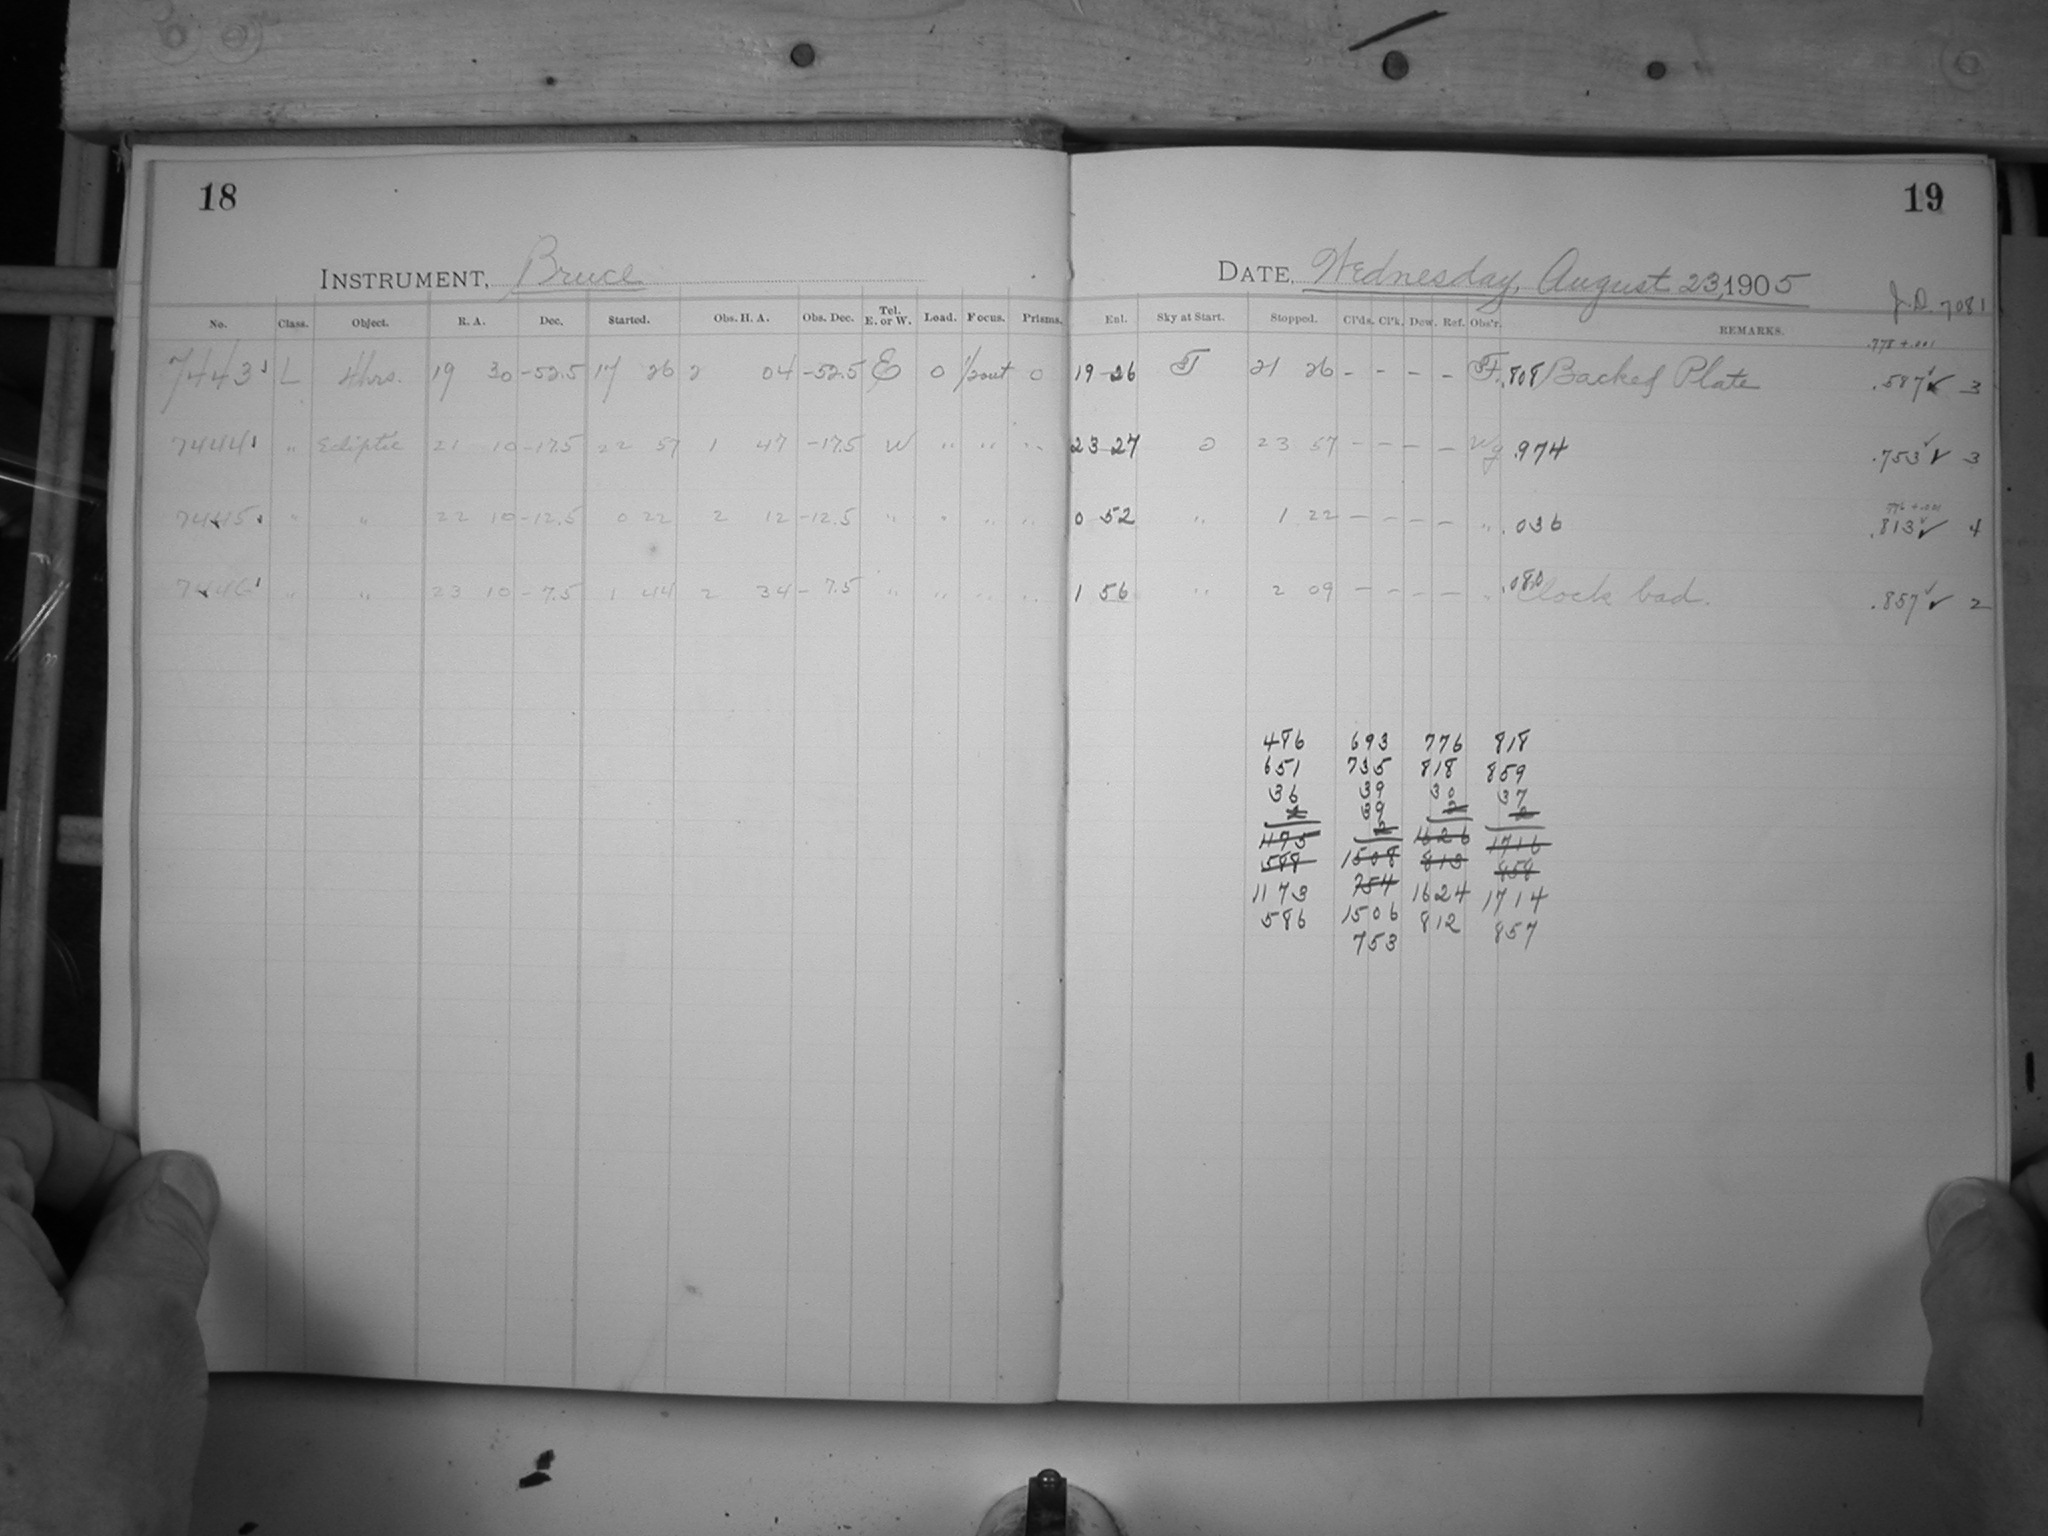 18
INSTRUMENT, Bruce
No. Class. Object. R. A. Dec. Started. Obs. H. A. Obs. Dec. Tel. E. or W. Load. Focus. Prisms.
7443 L 4hrs. 19 30 -52.5 17 26 2 04 -52.5 E 0 1/2out 0
7444 " Ecliptic 21 10 -17.5 22 57 1 47 -17.5 W " " "
7445 " " 22 10 -12.5 0 22 2 12 -12.5 " " " "
7446 " " 23 10 -7.5 1 44 2 34 -7.5 " " " "
19
DATE, Wednesday, August 23, 1905
J.D. 7081
Enl. Sky at Start. Stopped. Cl'ds. Cl'k. Dew. Ref. Obs'r. REMARKS.
.778 +.001
19 26 21 26 - - - - .808 Backed Plate .587 ✓ 3
23 27 0 23 57 - - - - .974 .753 ✓ 3
.776 +.001
0 52 " 1 22 - - - - " .036 .813 ✓ 4
1 56 " 2 09 - - - - " .080 Clock bad. .857 ✓ 2
486 693 776 818
651 735 818 859
36 39 30 37
2 39 2 2
1175 2 1626 1716
588 1508 813 858
1173 754 1624 1714
586 1506 812 857
753